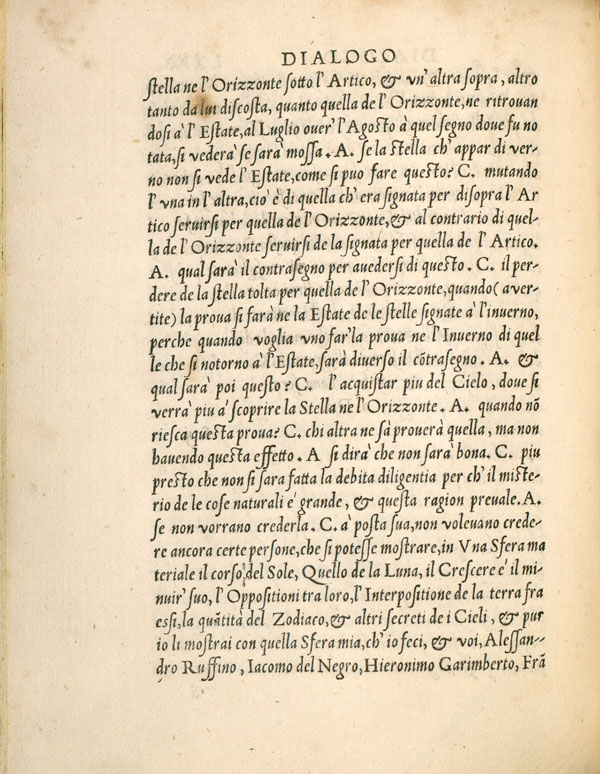 DIALOGO
ſtella ne l' Orizzonte ſotto l' Artico, & vn' altra ſopra, altro
tanto da lui diſcoſta, quanto quella de l' Orizzonte, ne ritrouan
doſi à l' Eſtate, al Luglio ouer' l' Agoſto à quel ſegno doue fu no
tata, ſi vederà ſe ſarà moſſa. A. ſe la ſtella ch' appar di ver-
no non ſi vede l' Eſtate, come ſi puo fare queſto? C. mutando
l' vna in l' altra, cio' è di quella ch' era ſignata per diſopra l' Ar
tico ſeruirſi per quella de l' Orizzonte, & al contrario di quel-
la de l' Orizzonte ſeruirſi de la ſignata per quella de l' Artico.
A. qual ſarà il contraſegno per auederſi di queſto. C. il per-
dere de la ſtella tolta per quella de l' Orizzonte, quando (a ver-
tite) la proua ſi farà ne la Eſtate de le ſtelle ſignate à l' inuerno,
perche quando voglia vno far' la proua ne l' Inuerno di quel
le che ſi notorno à l' Eſtate, ſarà diuerſo il cõtraſegno. A. &
qual ſarà poi queſto? C. l' acquiſtar piu del Cielo, doue ſi
verrà piu à ſcoprire la Stella ne l' Orizzonte. A. quando nõ
rieſca queſta proua? C. chi altra ne ſà prouerà quella, ma non
hauendo queſta effetto. A ſi dirà che non ſarà bona. C. piu
preſto che non ſi ſara fatta la debita diligentia per ch' il miſte-
rio de le coſe naturali è grande, & queſta ragion preuale. A.
ſe non vorrano crederla. C. à poſta ſua, non voleuano crede-
re ancora certe perſone, che ſi poteſſe moſtrare, in Vna Sfera ma
teriale il corſo del Sole, Quello de la Luna, il Creſcere è il mi-
nuir' ſuo, l' Oppoſitioni tra loro, l' Interpoſitione de la terra fra
eſſi, la quãtità del Zodiaco, & altri ſecreti de i Cieli, & pur
io li moſtrai con quella Sfera mia, ch' io feci, & voi, Aleſſan-
dro Ruffino, Iacomo del Negro, Hieronimo Garimberto, Frã